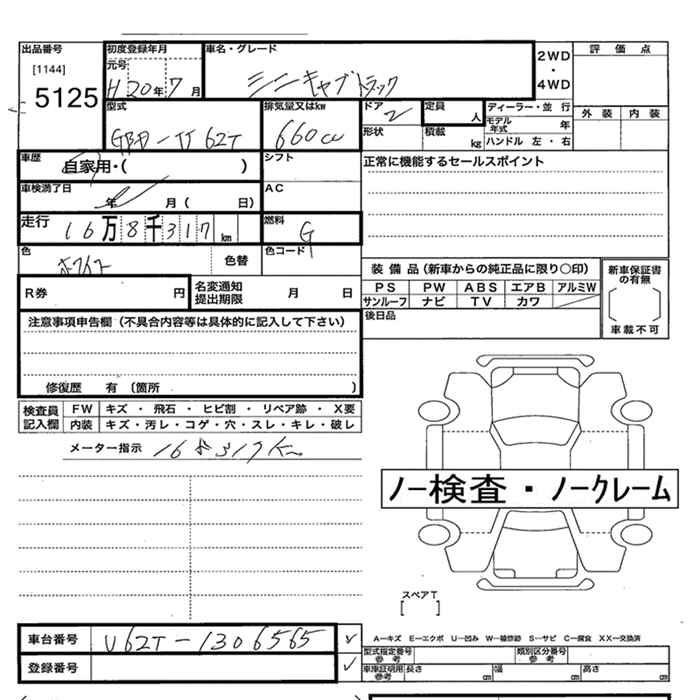 出品番号 初度登録年月 車名・グレード 2WD・4WD 評価点
[1144] 元号
5125 H 20年 7月 ミニキャブトラック
型式 排気量又はkw ドア 2 定員 人 ディーラー・並行 外装 内装
GBD-U62T 660cc 形状 積載 kg モデル年式 年
ハンドル 左・右
車歴 自家用・( ) シフト 正常に機能するセールスポイント
車検満了日 年 月( 日) AC
走行 16万8千317km 燃料 G
色 ホワイト 色替 色コード
R券 円 名変通知提出期限 月 日 装備品(新車からの純正品に限り○印) 新車保証書の有無
PS PW ABS エアB アルミW
サンルーフ ナビ TV カワ 車載不可
注意事項申告欄(不具合内容等は具体的に記入して下さい) 後日品
修復歴 有 〔箇所 〕
検査員記入欄 FW キズ・飛石・ヒビ割・リペア跡・X要
内装 キズ・汚レ・コゲ・穴・スレ・キレ・破レ
メーター指示
ノー検査・ノークレーム
スペアT
[ ]
車台番号 U62T-1306565 A―キズ E―エクボ U―凹み W―補修跡 S―サビ C―腐食 XX―交換済
登録番号 型式指定番号 参考 類別区分番号 参考
車庫証明用 参考 長さ cm 幅 cm 高さ cm